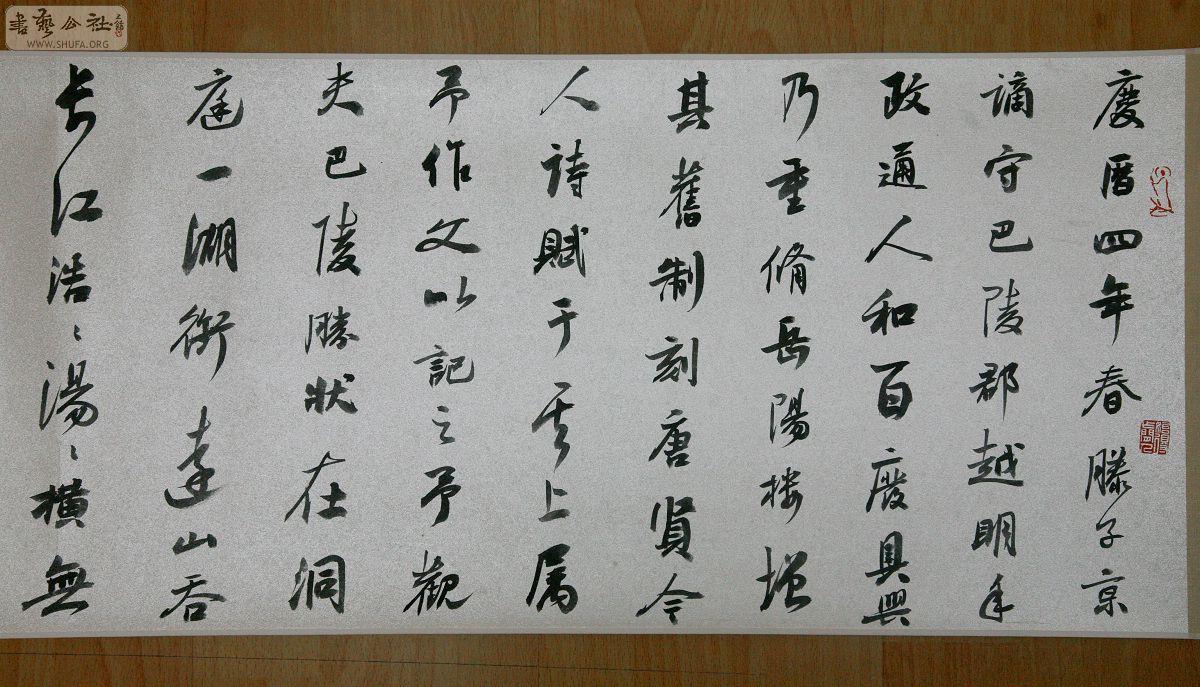 書藝公社
WWW.SHUFA.ORG
慶曆四年春滕子京
謫守巴陵郡越明年
政通人和百廢具興
乃重脩岳陽楼增
其舊制刻唐賢今
人詩賦于其上属
予作文以記之予觀
夫巴陵勝狀在洞
庭一湖銜遠山吞
長江浩〻湯〻橫無